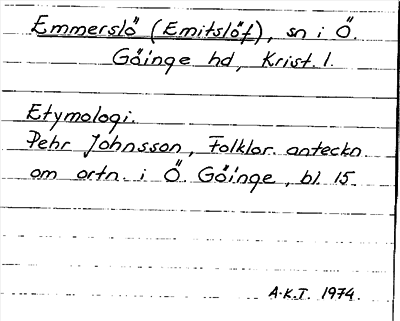 Emmerslö (Emitslöf), sn i Ö.
Göinge hd, Krist. l.
Etymologi.
Pehr Johnsson, Folklor. anteckn.
om ortn. i Ö. Göinge, bl. 15.
A.K.T. 1974.